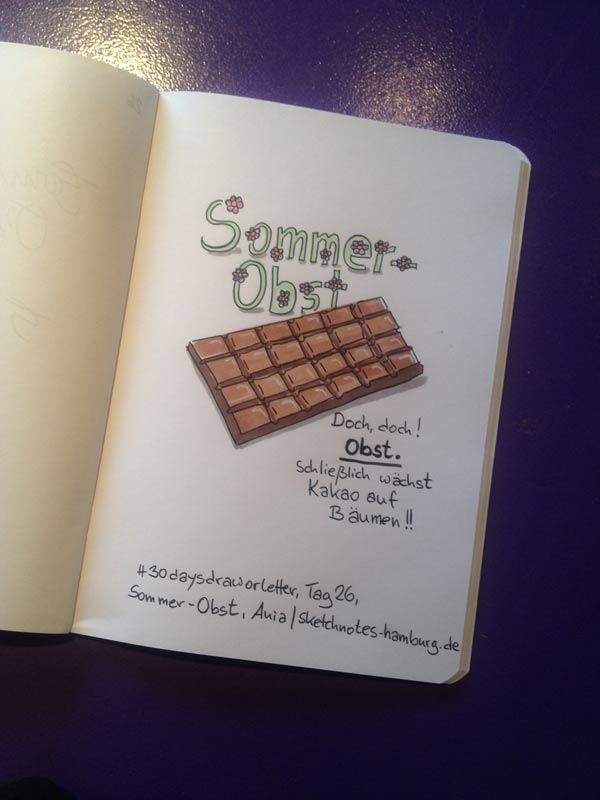 Sommer-
Obst
Doch, doch!
Obst.
Schließlich wächst
Kakao auf
Bäumen!!
#30daysdraworletter, Tag 26,
Sommer-Obst, Ania/sketchnotes-hamburg.de